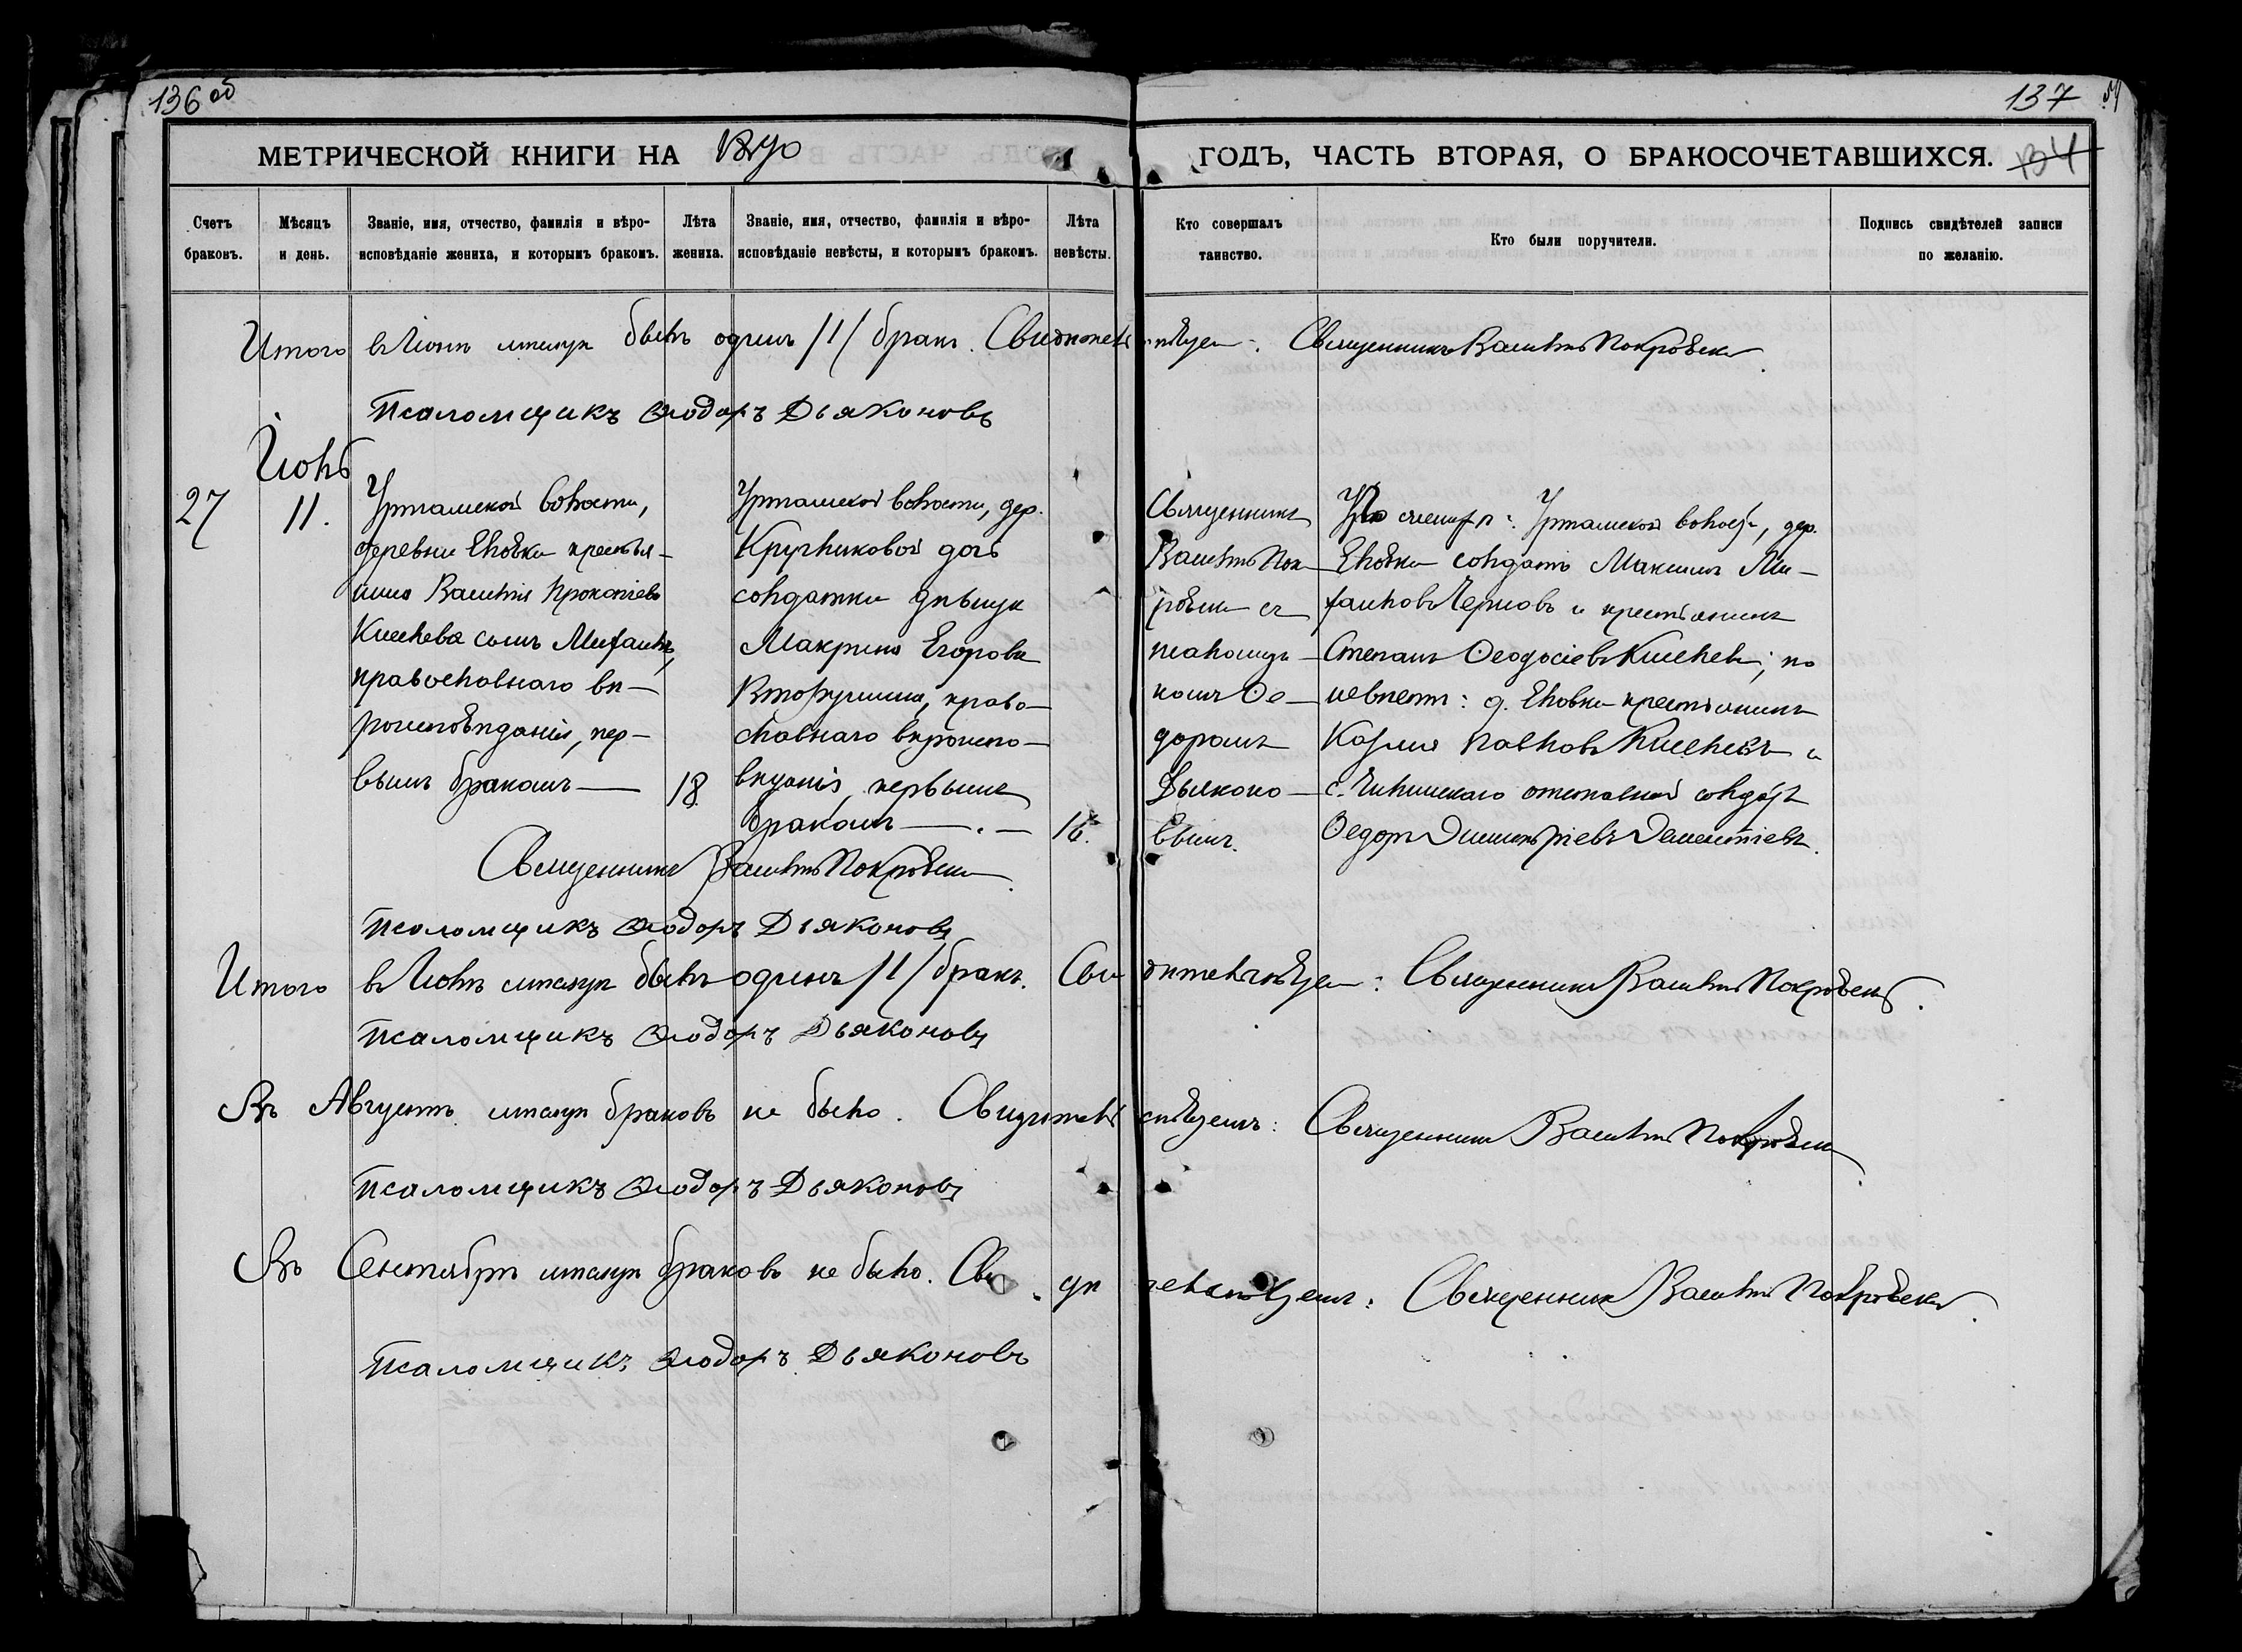 136 об
137
МЕТРИЧЕСКОЙ КНИГИ НА
ГОДЪ, ЧАСТЬ ВТОРАЯ, О БРАКОСОЧЕТАВШИХСЯ.
134
Счетъ браковъ.
Мѣсяцъ и день.
Званіе, имя, отчество, фамилія и вѣро-
исповѣданіе жениха, и которымъ бракомъ.
Лѣта жениха.
Званіе, имя, отчество, фамилія и вѣро-
исповѣданіе невѣсты, и которымъ бракомъ.
Лѣта невѣсты.
Кто совершалъ таинство.
Кто были поручители.
Подпись свидѣтелей записи
по желанію.
Итого въ Іюнѣ мѣсяцѣ былъ одинъ /1/ бракъ. Свидѣтельствуемъ: Священникъ Василій Покровскій
Псаломщикъ Ѳеодоръ Дьяконовъ
Іюль
27
11.
Уртамской волости,
деревни Еловки крестья-
нина Василія Прокопіева
Киселева сынъ Михаилъ,
православнаго вѣ-
роисповѣданія, пер-
вымъ бракомъ
18.
Уртамской волости, дер.
Кругликовой дочь
солдатки дѣвица
Макрина Егорова
Вторушина, право-
славнаго вѣроиспо-
вѣданія, первымъ
бракомъ
16.
Священникъ
Василій Пок-
ровскій съ
псаломщ-
комъ Ѳе-
доромъ
Дьяконо-
вымъ.
По женихѣ: Уртамской волости, дер.
Еловки солдатъ Максимъ Ми-
хаиловъ Черновъ и крестьянинъ
Степанъ Ѳеодосіевъ Киселевъ; по
невѣстѣ: д. Еловки крестьянинъ
Козма Павловъ Киселевъ и
с. отставной солдатъ
Ѳедоръ Димитріевъ Дементіевъ.
Священникъ Василій Покровскій
Псаломщикъ Ѳеодоръ Дьяконовъ
Итого въ Іюлѣ мѣсяцѣ былъ одинъ /1/ бракъ. Свидѣтельствуемъ: Священникъ Василій Покровскій.
Псаломщикъ Ѳеодоръ Дьяконовъ
Въ Августѣ мѣсяцѣ браковъ не было. Свидѣтельствуемъ: Священникъ Василій Покровскій
Псаломщикъ Ѳеодоръ Дьяконовъ
Въ Сентябрѣ мѣсяцѣ браковъ не было. Свидѣтельствуемъ: Священникъ Василій Покровскій.
Псаломщикъ Ѳеодоръ Дьяконовъ